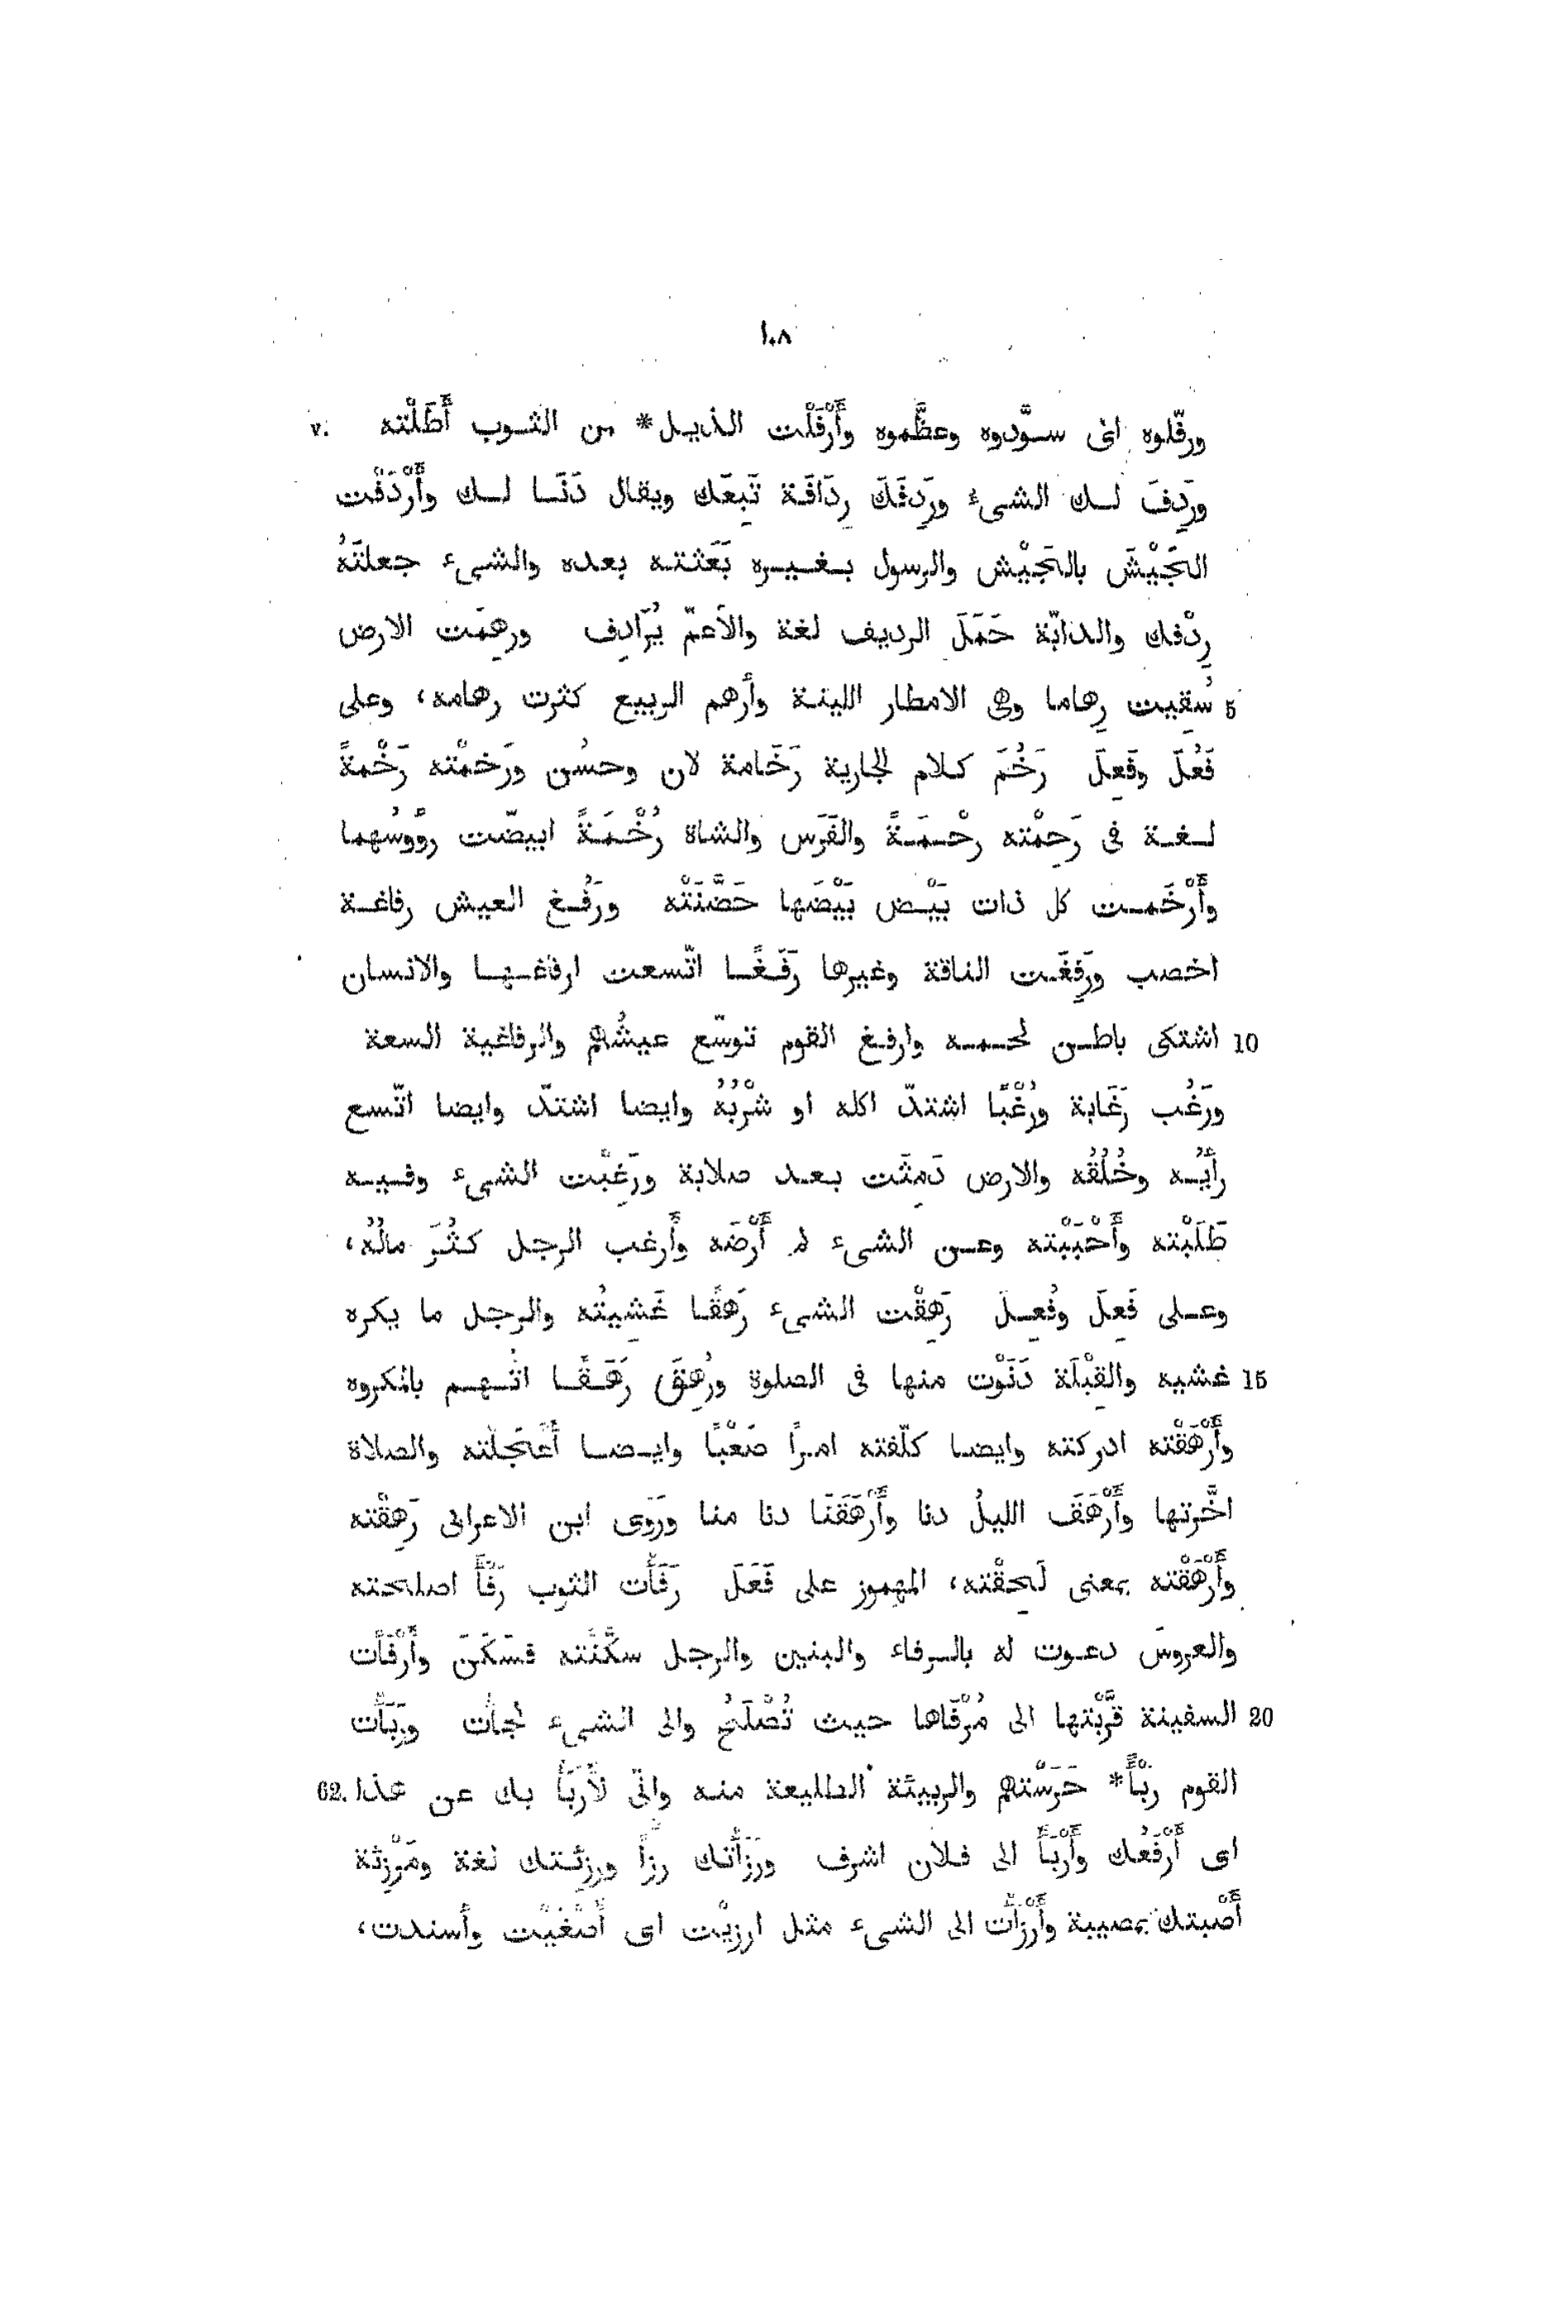 ١٠٨
ورفّلوه اى سوّدوه وعظّموه وأَرْفَلْت الذيل* من الثوب أَطَلْته v.
ورَدِفَ لك الشىء ورَدِفَكَ رِدَافَة تَبِعَك ويقال دَنَا لك وأَرْدَفْت
الجَيْشَ بالجَيْش والرسول بغيره بَعَثته بعده والشىء جعلتَهُ
رِدْفك والدابّة حَمَلَ الرديف لغة والأعمّ يُرَادِف ورهِمَت الارض
5 سُقِيت رِهاما وهى الامطار اللينة وأرهم الربيع كثرت رهامه، وعلى
فَعُلَ وفَعِلَ رَخُمَ كلام الجارية رَخَامة لان وحسُن ورَخِمْته رَخْمةً
لغة فى رَحِمْته رحْمَةً والفَرَس والشاة رُخْمَةً ابيضّت رؤُوسُهما
وأَرْخَمت كل ذات بَيْض بَيْضَها حَضَّنَتْه ورَفُغ العيش رفاغة
اخصب ورَفِغَت الناقة وغيرها رَفَغًا اتّسعت ارفاغها والانسان
10 اشتكى باطن لحمه وارفغ القوم توسّع عيشُهم والرفاغية السعة
ورَغُب رَغَابة ورُغْبًا اشتدّ اكله او شُرْبُهُ وايضا اشتدّ وايضا اتّسع
رأيُه وخُلُقُه والارض دَمِثَت بعد صلابة ورَغِبْت الشىء وفيه
طَلَبْته وأَحْبَبْته وعن الشىء لم أَرْضَه وأَرغب الرجل كثُرَ مالُه،
وعلى فَعِلَ وفُعِلَ رَهِقْت الشىء رَهَقًا غَشِيتُه والرجل ما يكره
15 غشيه والقِبْلَة دَنَوْت منها فى الصلوة ورُهِقَ رَهَقًا اتُّهم بالمكروه
وأَرْهَقْته ادركته وايضا كلّفته امرًا صَعْبًا وايضا أَعْجَلته والصلاة
اخَّرتها وأَرْهَقَ الليلُ دنا وأَرْهَقَنَا دنا منا ورَوَى ابن الاعرابى رَهِقْته
وأَرْهَقْته بمعنى لَحِقْته، المهموز على فَعَلَ رَفَأْت الثوب رَفْأً اصلحته
والعروسَ دعوت له بالرفاء والبنين والرجل سكَّنْته فسَكَنَ وأَرْفَأْت
20 السفينة قرَّبْتها الى مُرْفَاها حيث تُصْلَحُ والى الشىء لجأت ورَبَأْت
القوم رَبْأً* حَرَسْتهم والربيئة الطليعة منه وانّى لأَرْبَأُ بك عن هذا 62.
اى أَرْفَعُك وأَرْبَأَ الى فلان اشرف ورَزَأْتك رزأً ورزِئتك لغة ومَرْزِئة
أَصَبتك بمصيبة وأَرْزَأْت الى الشىء مثل ارزيْت اى أَصْغَيْت وأسندت،